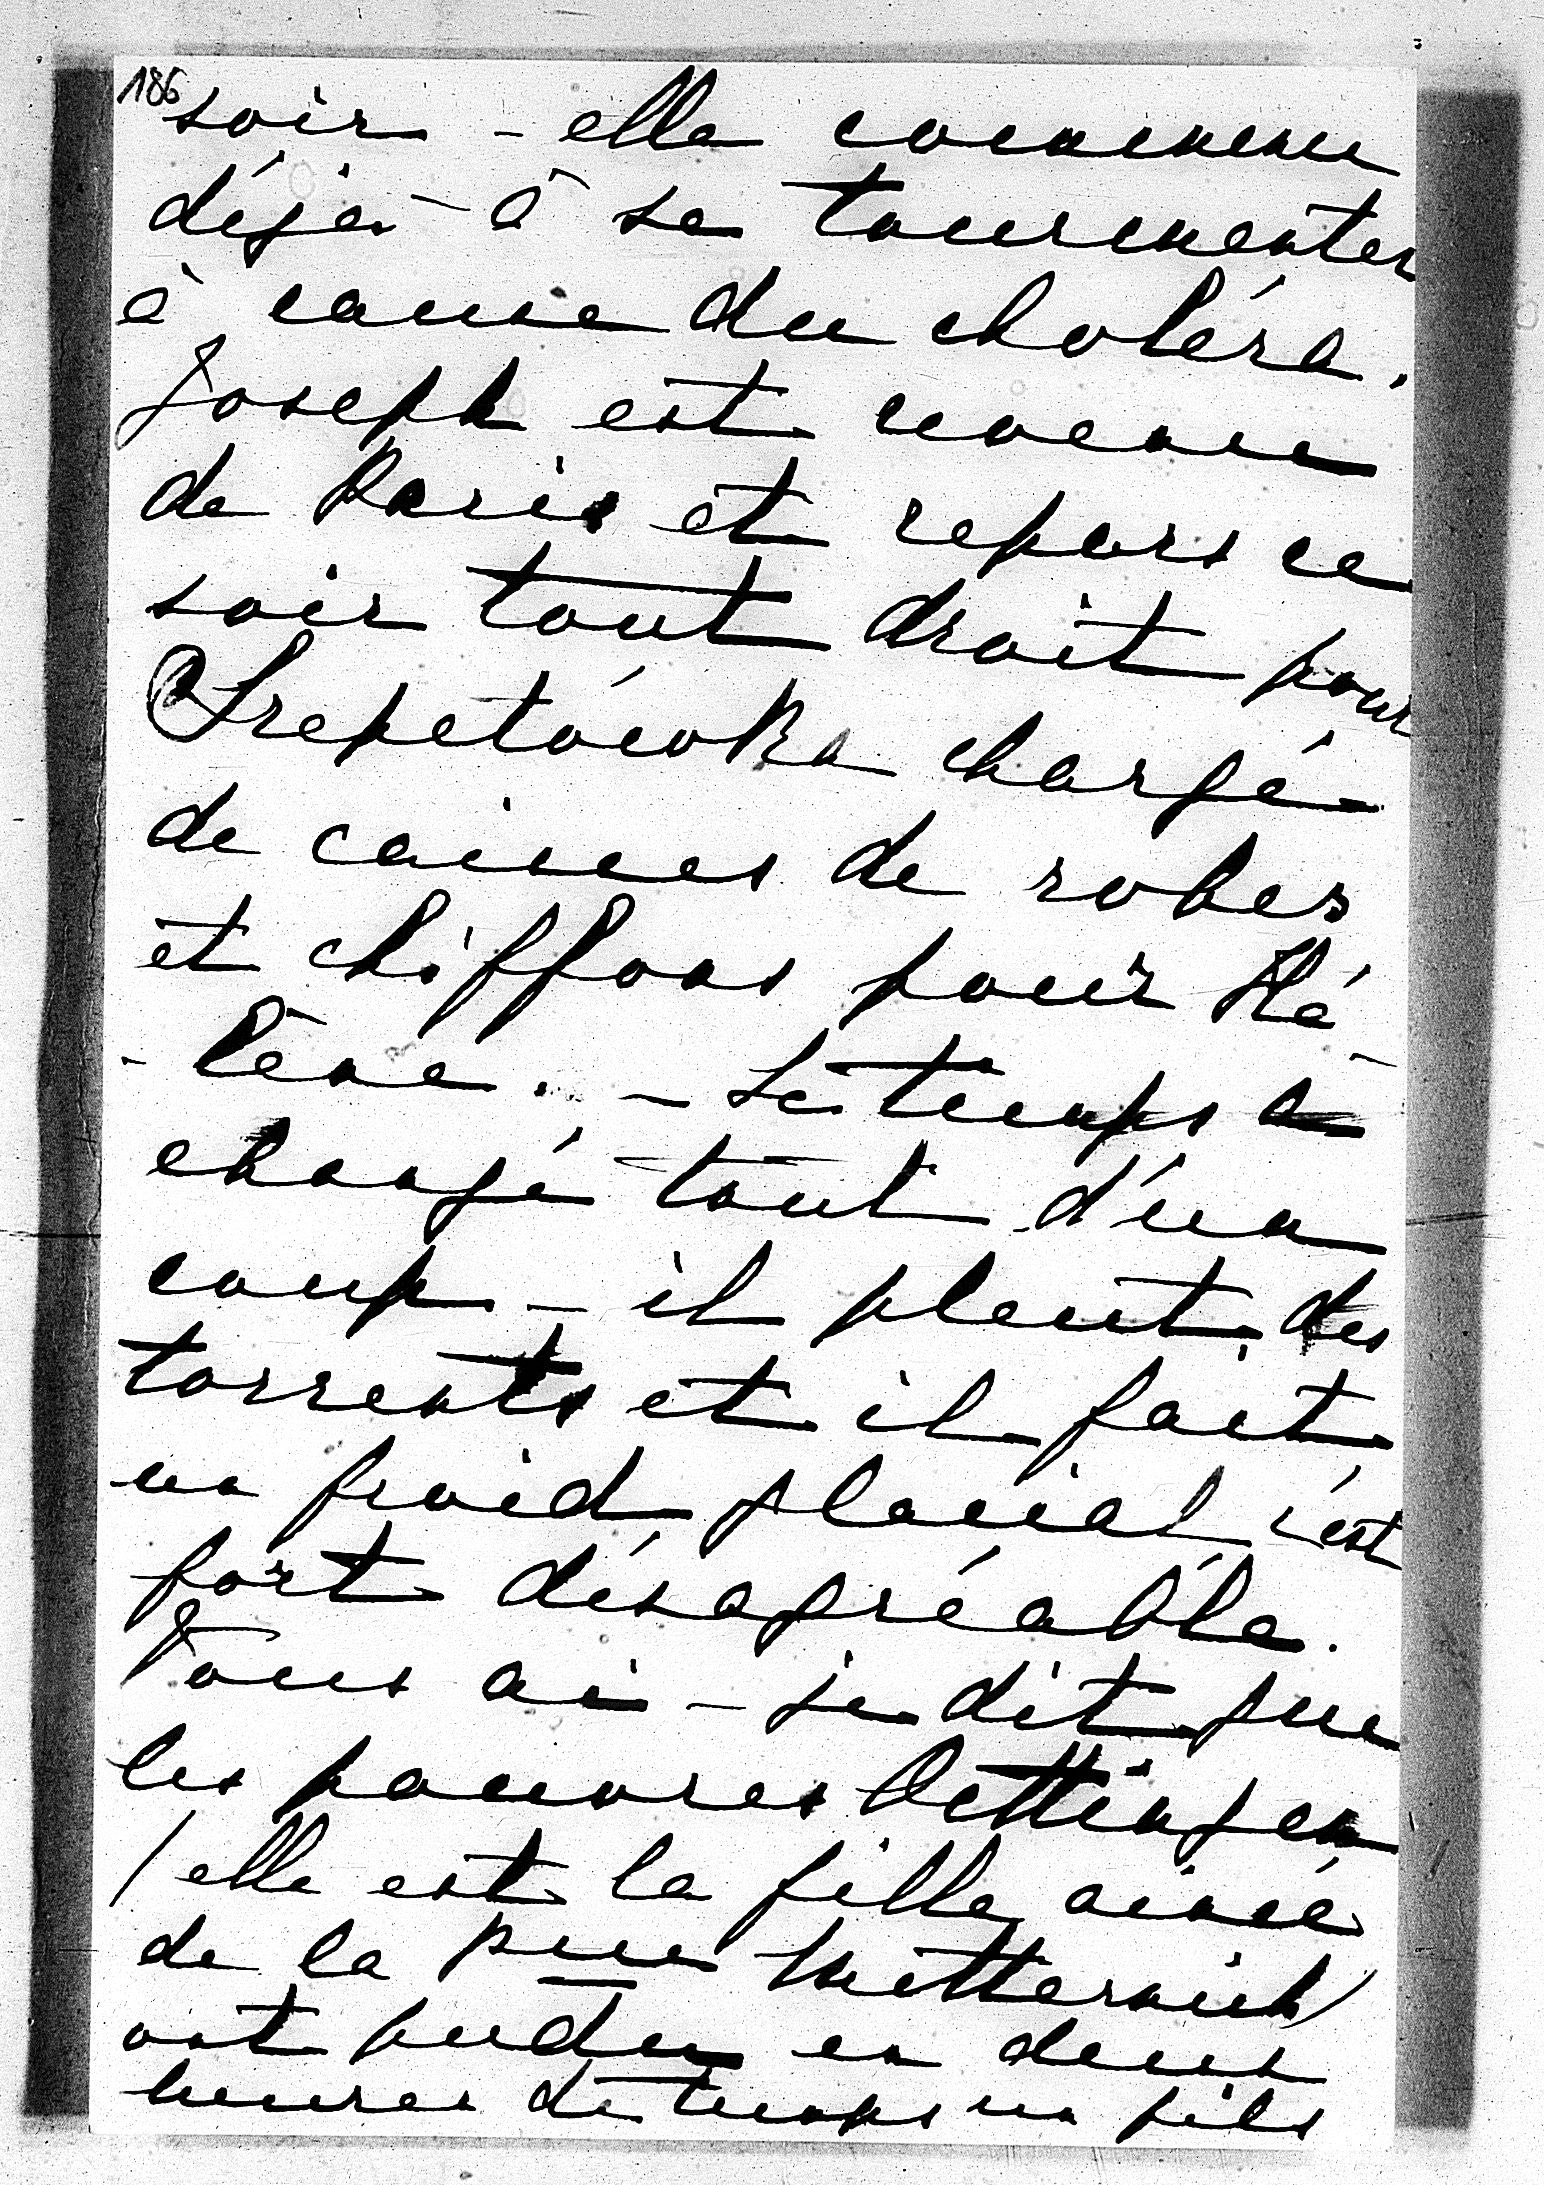 186
soir - elle commence
déjà - à se tourmenter
à cause du choléra.
Joseph est revenu
de Paris et repars ce
soir tout droit pour
Szepetówka chargé
de caisses de robes
et chiffons pour Hé-
- lène. - Le temps a
changé tout d'un
coup - il pleut des
torrents et il fait
un froid glacial c'est
fort désagréable.
Vous ai-je dit que
les pauvres Oettingen
(elle est la fille ainée
de la Pcesse Metternich)
ont perdu en deux
heures de temps un fils